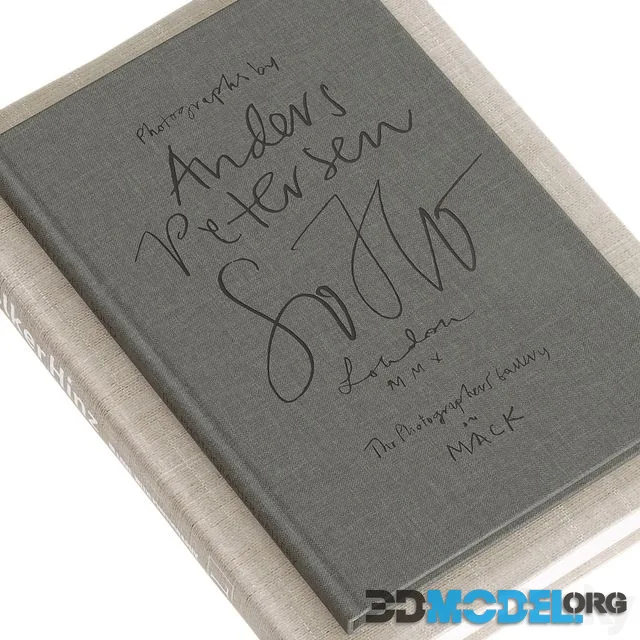 Photographs by
Anders
Petersen
SoHo
London
M M X
The Photographers' Gallery
MACK
lkerHinz
3DMODEL.ORG